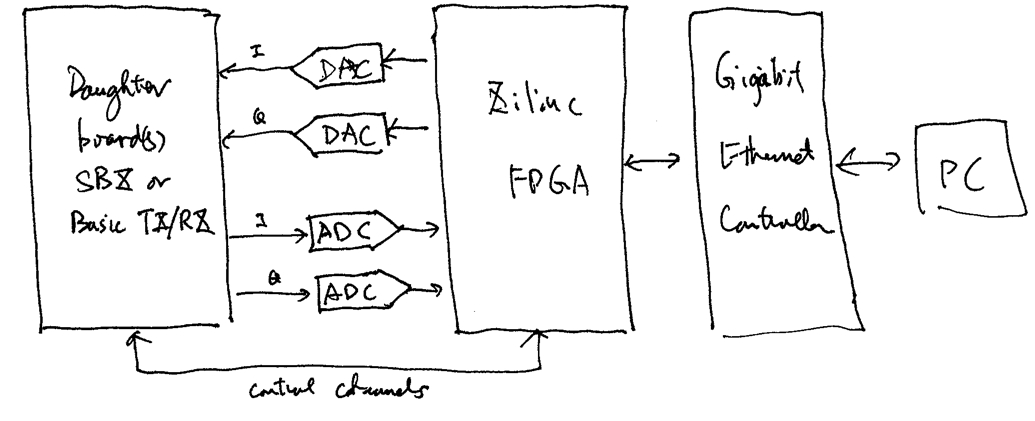 Daughter
board(s)
SBX or
Basic TX/RX
I
DAC
Q
DAC
I
ADC
Q
ADC
Xilinc
FPGA
Gigabit
Ethernet
Controller
PC
control channels